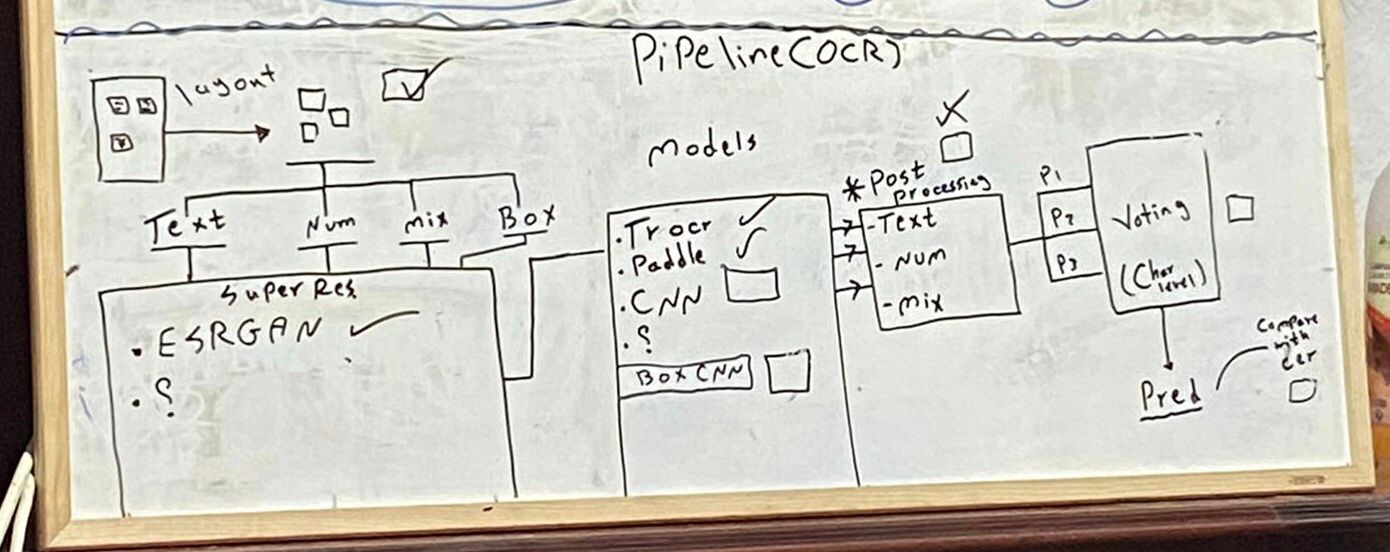 Pipeline(OCR)
layout
Text
Num
mix
Box
Super Res
. ESRGAN
. ?
models
. Trocr
. Paddle
. CNN
. ?
Box CNN
* Post
Processing
- Text
- NUM
- mix
P1
P2
P3
Voting
(Char
level)
Pred
Compare
with
cer